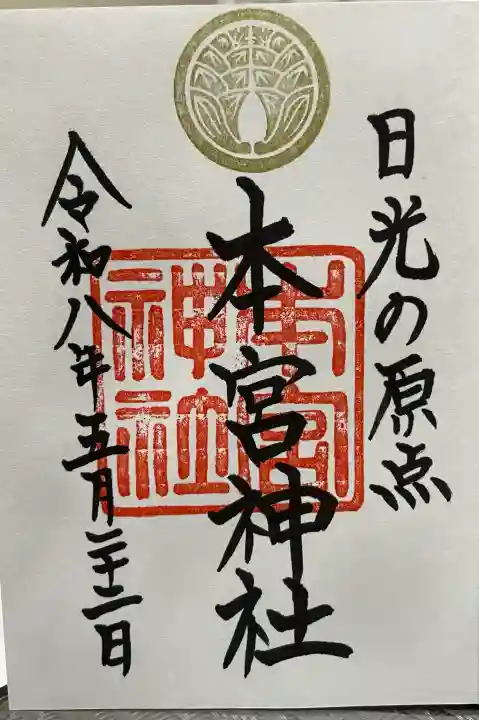 日光の原点
本宮神社
令和八年五月二十二日
本宮
神社